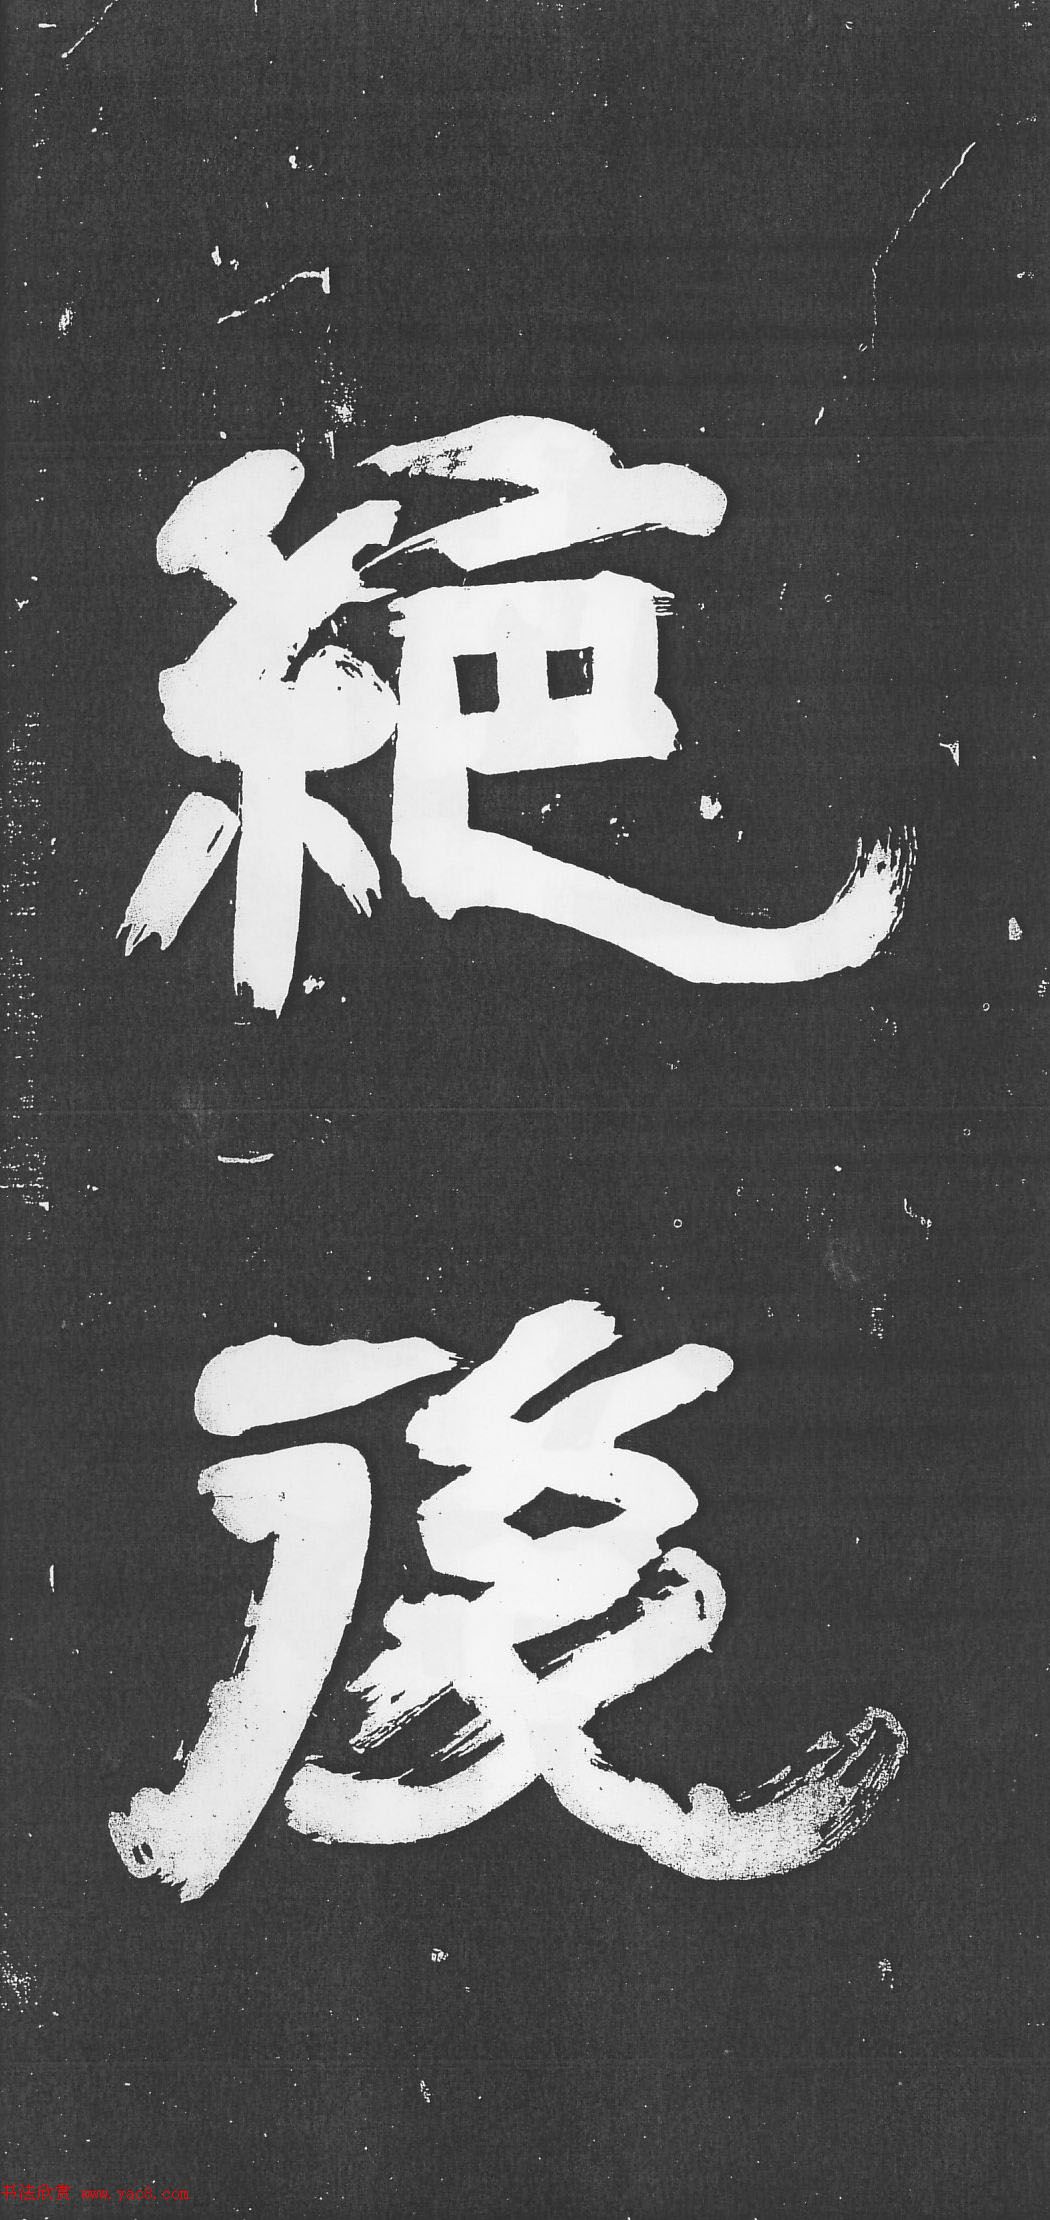 絕
後
书法欣赏 www.yac8.com